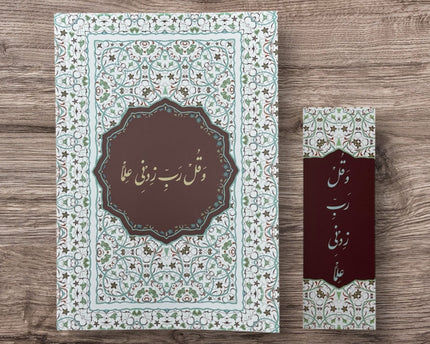 وَقُلْ رَبِّ زِدْنِي عِلْمًا
وَقُلْ
رَبِّ
زِدْنِي
عِلْمًا